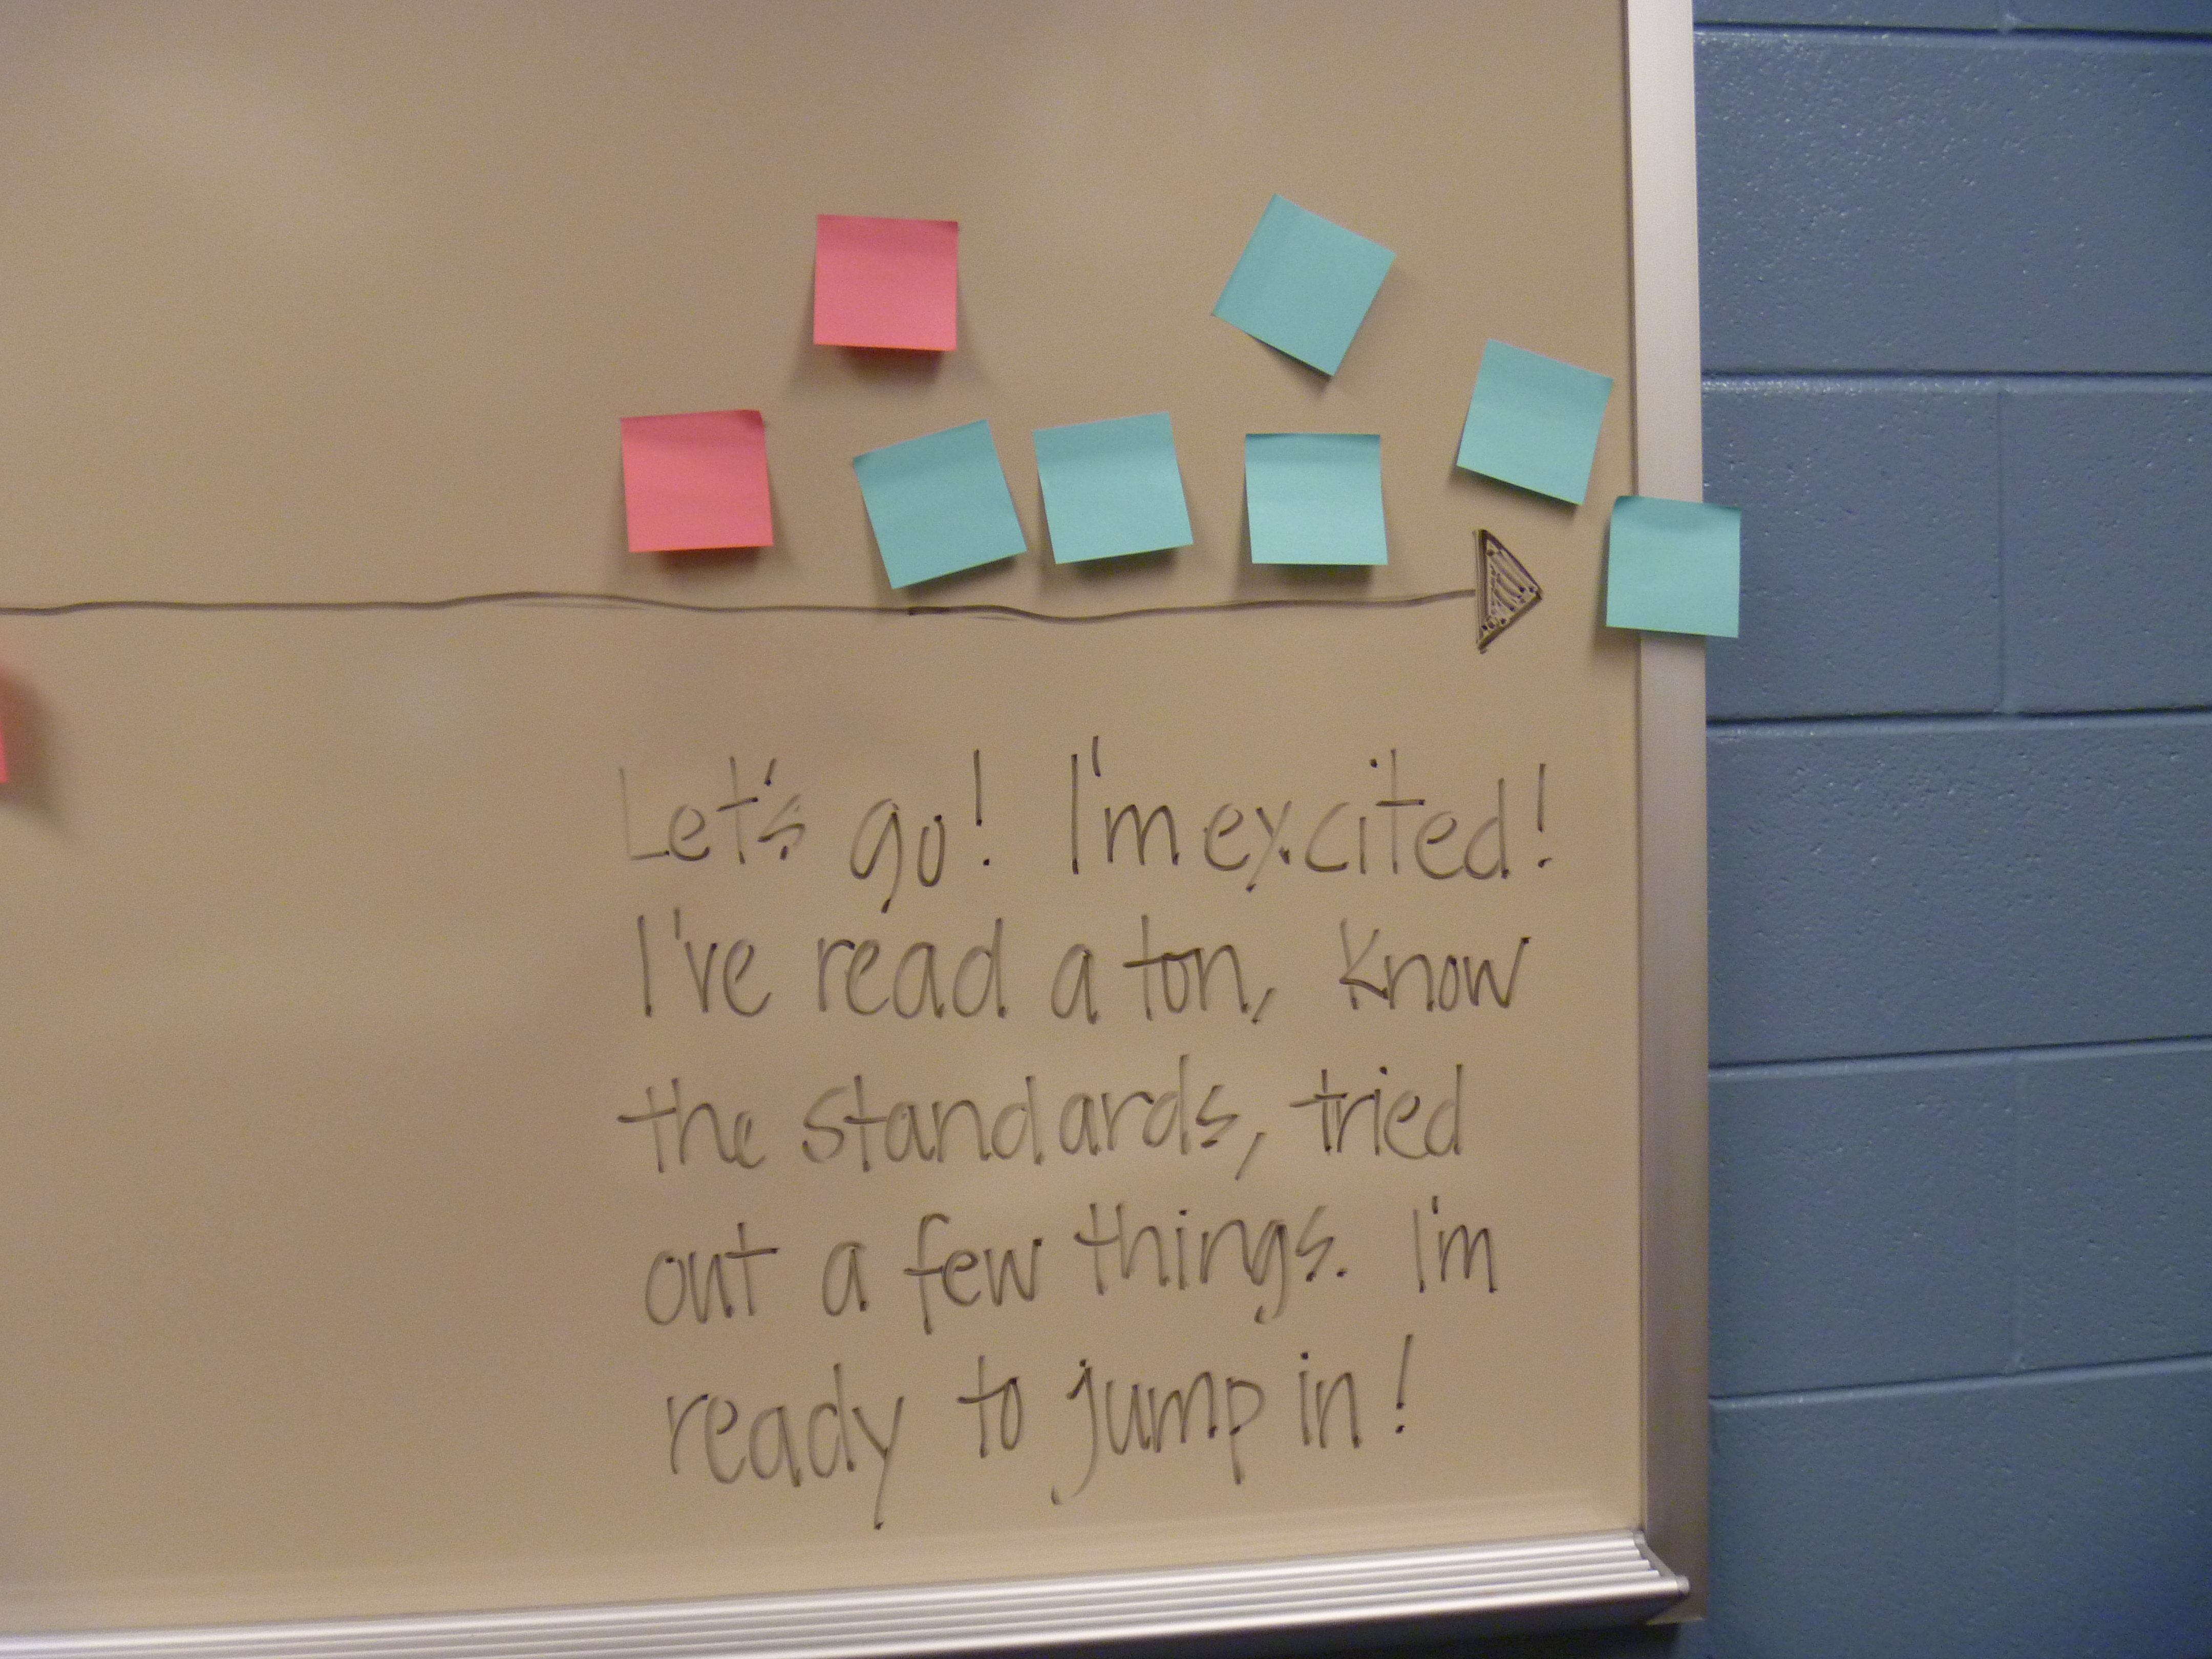 Let's go! I'm excited!
I've read a ton, know
the standards, tried
out a few things. I'm
ready to jump in!